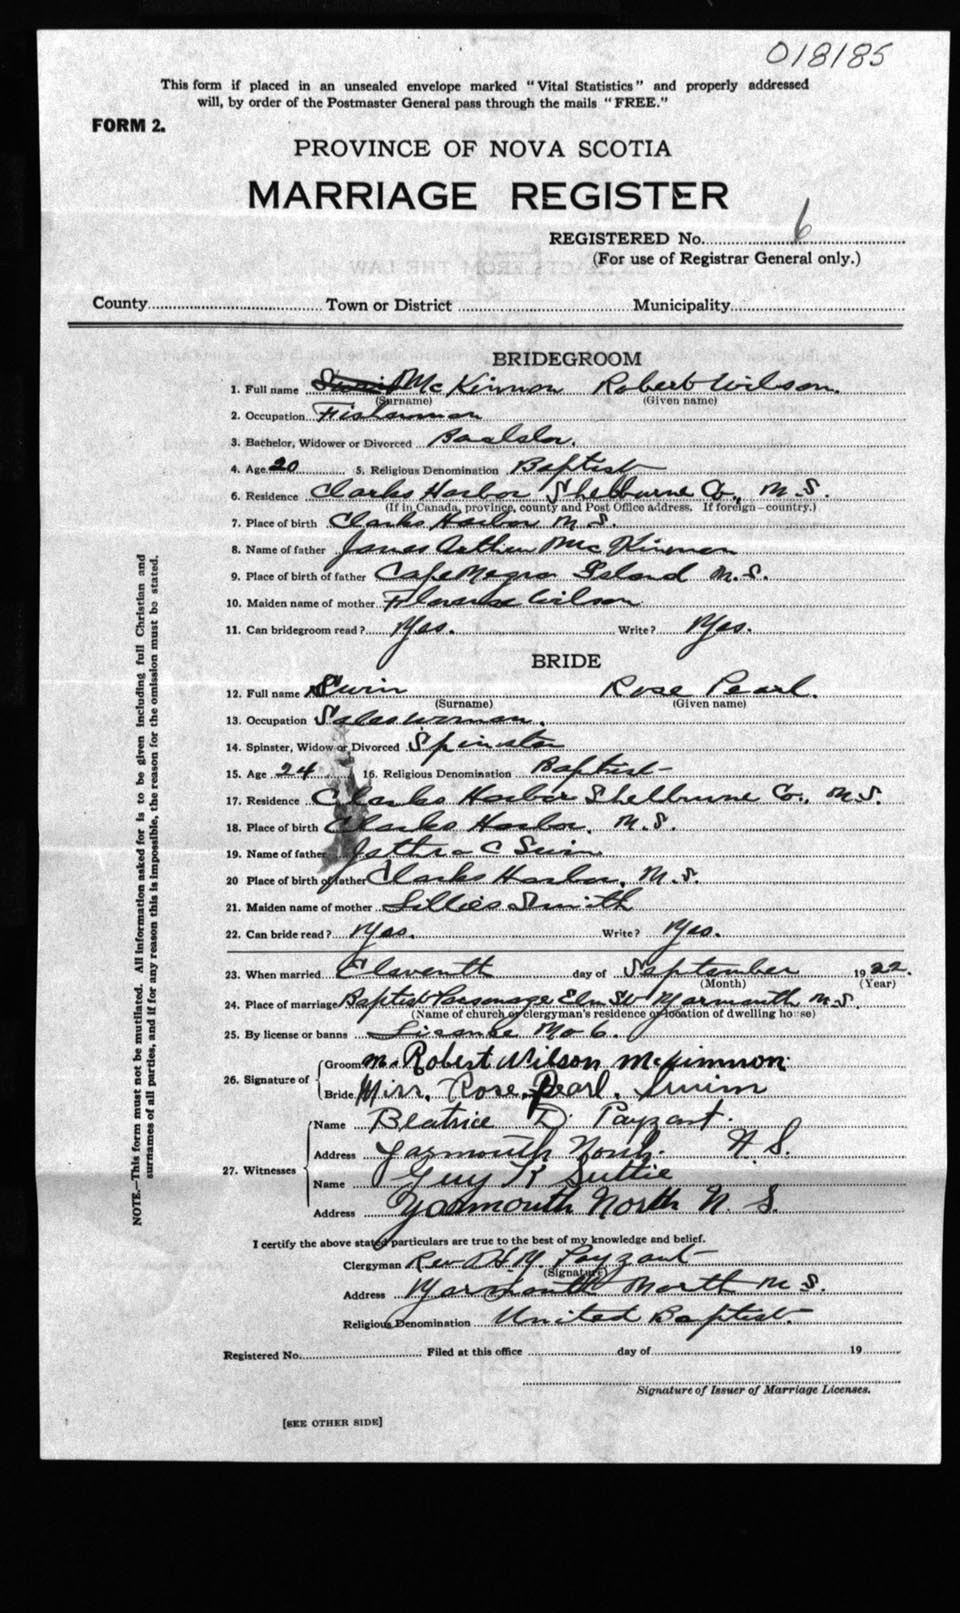 018185
This form if placed in an unsealed envelope marked "Vital Statistics" and properly addressed
will, by order of the Postmaster General pass through the mails "FREE."
FORM 2.
PROVINCE OF NOVA SCOTIA
MARRIAGE REGISTER
REGISTERED No. 6
(For use of Registrar General only.)
County Town or District Municipality
BRIDEGROOM
1. Full name McKinnon Robert Wilson.
(Surname) (Given name)
2. Occupation Fisherman
3. Bachelor, Widower or Divorced Bachelor.
4. Age 20 5. Religious Denomination Baptist
6. Residence Clarks Harbor Shelburne Co., N.S.
(If in Canada, province, county and Post Office address. If foreign—country.)
7. Place of birth Clarks Harbor N.S.
8. Name of father James Arthur McKinnon
9. Place of birth of father Cape Negro Island N.S.
10. Maiden name of mother Florence Wilson
11. Can bridegroom read? Yes. Write? Yes.
BRIDE
12. Full name Swim Rose Pearl.
(Surname) (Given name)
13. Occupation Saleswoman.
14. Spinster, Widow or Divorced Spinster
15. Age 24 16. Religious Denomination Baptist
17. Residence Clarks Harbor Shelburne Co., N.S.
18. Place of birth Clarks Harbor, N.S.
19. Name of father C Swim
20 Place of birth of father Clarks Harbor, N.S.
21. Maiden name of mother Smith
22. Can bride read? Yes. Write? Yes.
23. When married Eleventh day of September 1922.
(Month) (Year)
24. Place of marriage Baptist Parsonage Elm St Yarmouth N.S.
(Name of church or clergyman's residence or location of dwelling house)
25. By license or banns License No 6.
26. Signature of Groom Mr. Robert Wilson McKinnon
Bride Miss. Rose. Pearl. Swim
27. Witnesses Name Beatrice D. Payzant.
Address Yarmouth North. N.S.
Name Guy R Suttie
Address Yarmouth North N. S.
I certify the above stated particulars are true to the best of my knowledge and belief.
Clergyman Rev A.H.M. Payzant
(Signature)
Address Yarmouth North N S.
Religious Denomination United Baptist.
Registered No. Filed at this office day of 19
Signature of Issuer of Marriage Licenses.
[SEE OTHER SIDE]
NOTE.—This form must not be mutilated. All information asked for is to be given including full Christian and
surnames of all parties, and if for any reason this is impossible, the reason for the omission must be stated.